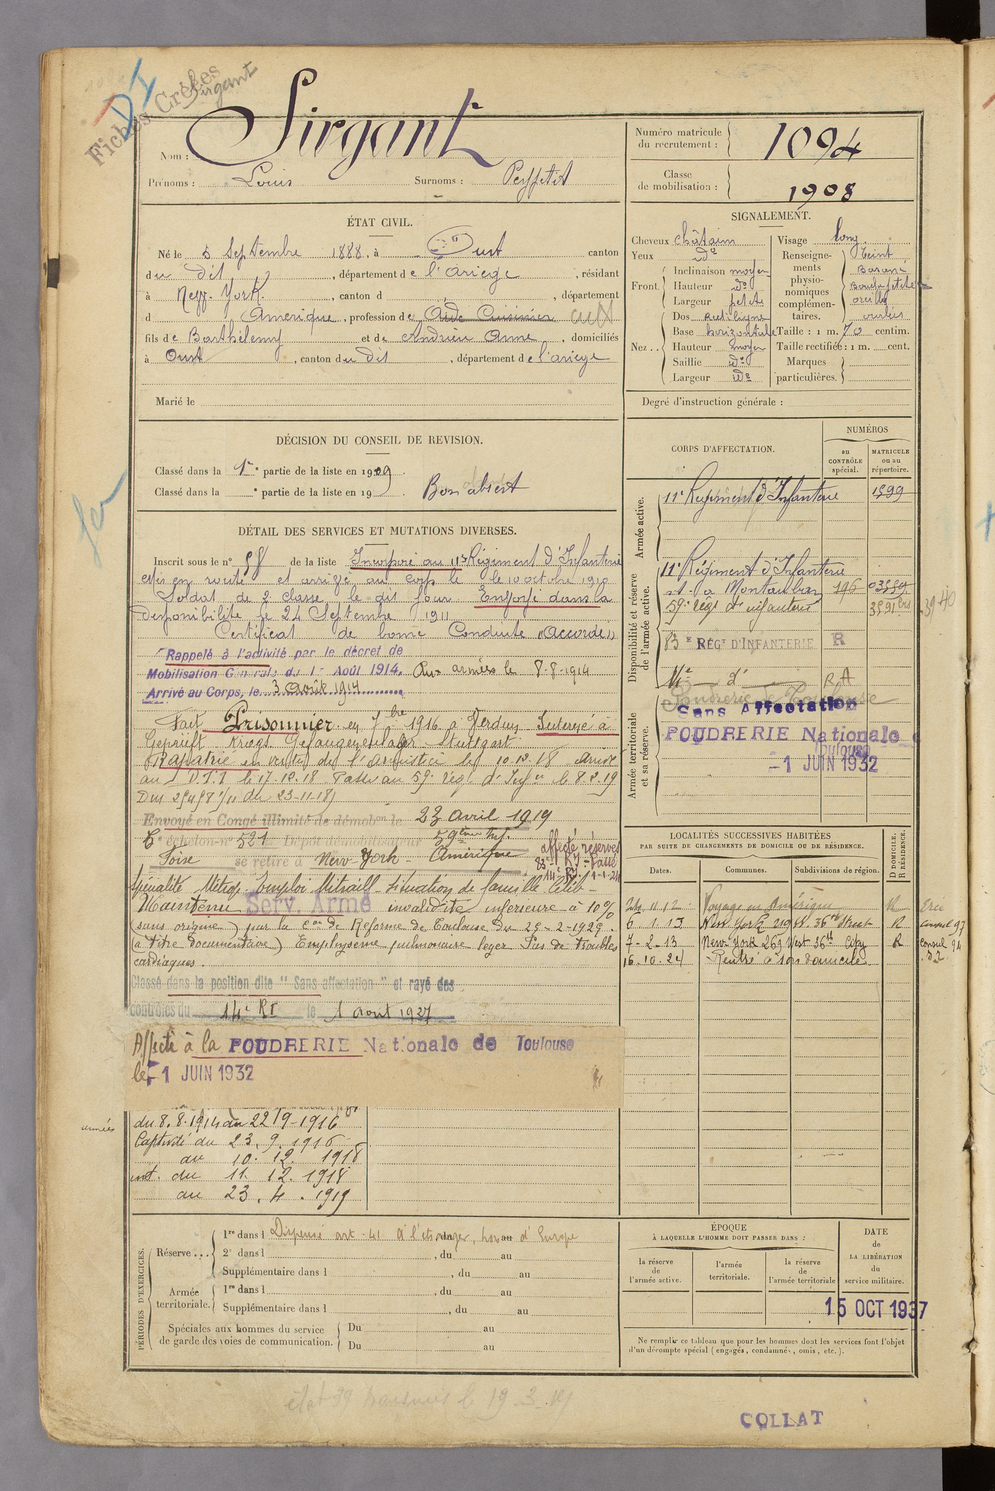 Fiches Créées
Sirgant
DI
Nom : Sirgant
Prénoms : Louis Surnoms : Peyfetit
Numéro matricule du recrutement : 1094
Classe de mobilisation : 1908
ÉTAT CIVIL.
Né le 5 Septembre 1888, à Oust canton
du dit, département de l'Ariège, résidant
à New-York, canton d , département
d Amerique, profession de Aide Cuisinier
fils de Barthélemy et de Andrieu Anne, domiciliés
à Oust, canton du dit, département de l'ariège
Marié le
SIGNALEMENT.
Cheveux châtain
Yeux do
Front. Inclinaison moyen
Hauteur do
Largeur petite
Nez.. Dos Rectiligne
Base horizontale
Hauteur moyen
Saillie do
Largeur do
Visage long
Renseignements physionomiques complémentaires. Teint Basané
oreilles
Taille : 1 m. 70 centim.
Taille rectifiée : 1 m. cent.
Marques particulières.
Degré d'instruction générale :
DÉCISION DU CONSEIL DE REVISION.
Classé dans la 1re partie de la liste en 1909
Classé dans la e partie de la liste en 19 Bon absent
DÉTAIL DES SERVICES ET MUTATIONS DIVERSES.
Inscrit sous le n° 58 de la liste Incorporé au 11e Régiment d'Infanterie
mis en route et arrivé au corps le 10 octobre 1910
Soldat de 2e classe le dit jour Envoyé dans la
Disponibilité le 24 Septembre 1911
Certificat de bonne Conduite "Accordé"
Rappelé à l'activité par le décret de
Mobilisation Générale du 1er Août 1914. Aux armées le 8-8-1914
Arrivé au Corps, le 3 août 1914
Fait Prisonnier en 7bre 1916 à Verdun Interné à
Geprüft Kriegs Gefangenenlager Stuttgart
Rapatrié en vertu de l'armistice le 10.12.18 arrivé
au D.T.I le 17.12.18 Passé au 59e Rég. d'Infie le 8.2.19
du 23-11-18)
Envoyé en Congé illimité de démobon le 23 Avril 1919
6e échelon - n° 521 Dépôt démobilisateur 59ème Inf.
se retire à New York - Amérique
affecté réserve
83e RI - Passé
14e RI 1-1-24
Spécialité Emploi Mitraill. situation de famille Célib -
Maintenu Serv. Armé invalidité inferieure à 10%
sans origine) par la con de Réforme de Toulouse du 25-2-1929.
(à titre documentaire) Emphysème pulmonaire leger Pas de troubles
cardiaques.
Classé dans la position dite "Sans affectation" et rayé des
contrôles du 14e RI le 1 aout 1927
Affecté à la POUDRERIE Nationale de Toulouse
le - 1 JUIN 1932
armées
du 8.8.1914 au 22 9-1916
Captivité du 23.9.1916
au 10.12.1918
int. du 11.12.1918
au 23.4.1919
CORPS D'AFFECTATION.
NUMÉROS
au CONTRÔLE spécial.
MATRICULE ou au répertoire.
Armée active.
11e Régiment d'Infanterie 1399
Disponibilité et réserve de l'armée active.
11e Régiment d'Infanterie
st. à Montauban
59e régt d'infanterie
83e RÉGt D'INFANTERIE R
14e d° R A
Armée territoriale et sa réserve.
Poudrerie de Toulouse
Sans Affectation
POUDRERIE Nationale d
Toulouse
- 1 JUIN 1932
LOCALITÉS SUCCESSIVES HABITÉES
PAR SUITE DE CHANGEMENTS DE DOMICILE OU DE RÉSIDENCE.
Dates. Communes. Subdivisions de région. D DOMICILE. R RÉSIDENCE.
24.11.12 Voyage en Amérique R
6-1-13 New York 209 W. 36th Street R
7-2-13 New York 269 West 36th City R
16.10.24 Rentré à son domicile.
PÉRIODES D'EXERCICES.
Réserve... 1re dans l Dispensé art 41 à l'étranger, hors d'Europe
2e dans l , du au
Supplémentaire dans l , du au
Armée territoriale. 1re dans l , du au
Supplémentaire dans l , du au
Spéciales aux hommes du service de garde des voies de communication. Du au
Du au
ÉPOQUE
À LAQUELLE L'HOMME DOIT PASSER DANS :
la réserve de l'armée active.
l'armée territoriale.
la réserve de l'armée territoriale
DATE de LA LIBÉRATION du service militaire.
15 OCT 1937
Ne remplir ce tableau que pour les hommes dont les services font l'objet
d'un décompte spécial (engagés, condamnés, omis, etc.).
COLLAT